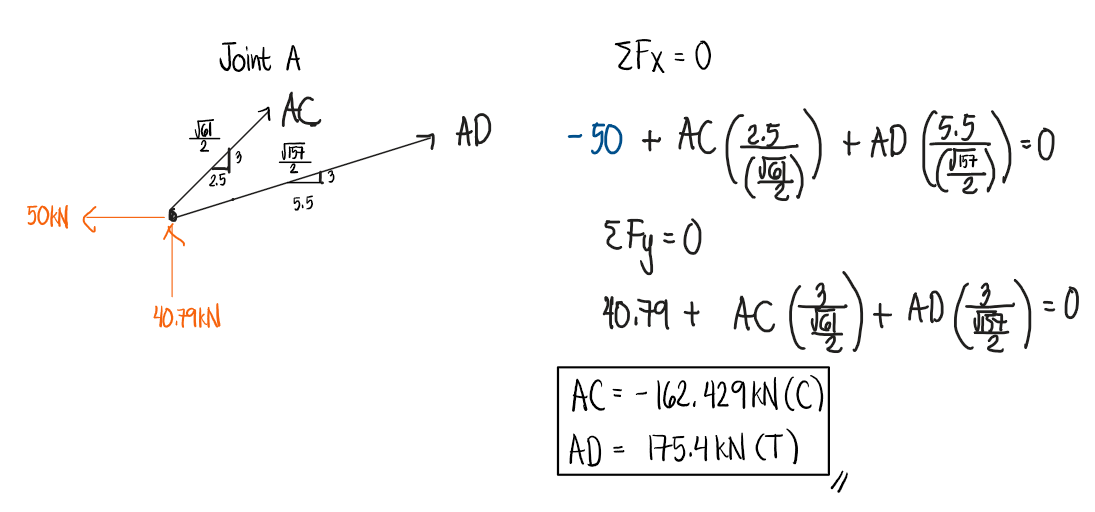 Joint A
AC
√61/2
3
2.5
AD
√157/2
3
5.5
50kN
40.79kN
ΣFx = 0
-50 + AC (2.5/(√61/2)) + AD (5.5/(√157/2)) = 0
ΣFy = 0
40.79 + AC (3/(√61/2)) + AD (3/(√157/2)) = 0
AC = -162.429kN (C)
AD = 175.4kN (T)
//